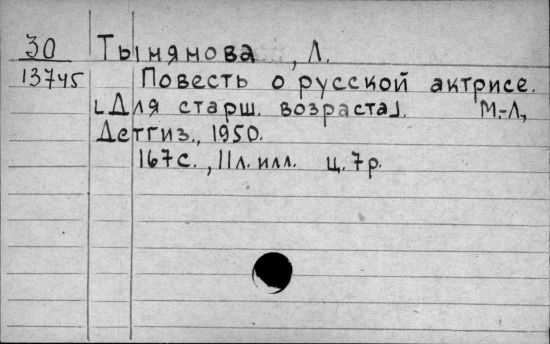 30 Тынянова, Л.
13745 Повесть о русской актрисе.
[Для старш. возраста]. М.-Л.,
Детгиз., 1950.
167с., 11л. илл. ц. 7р.